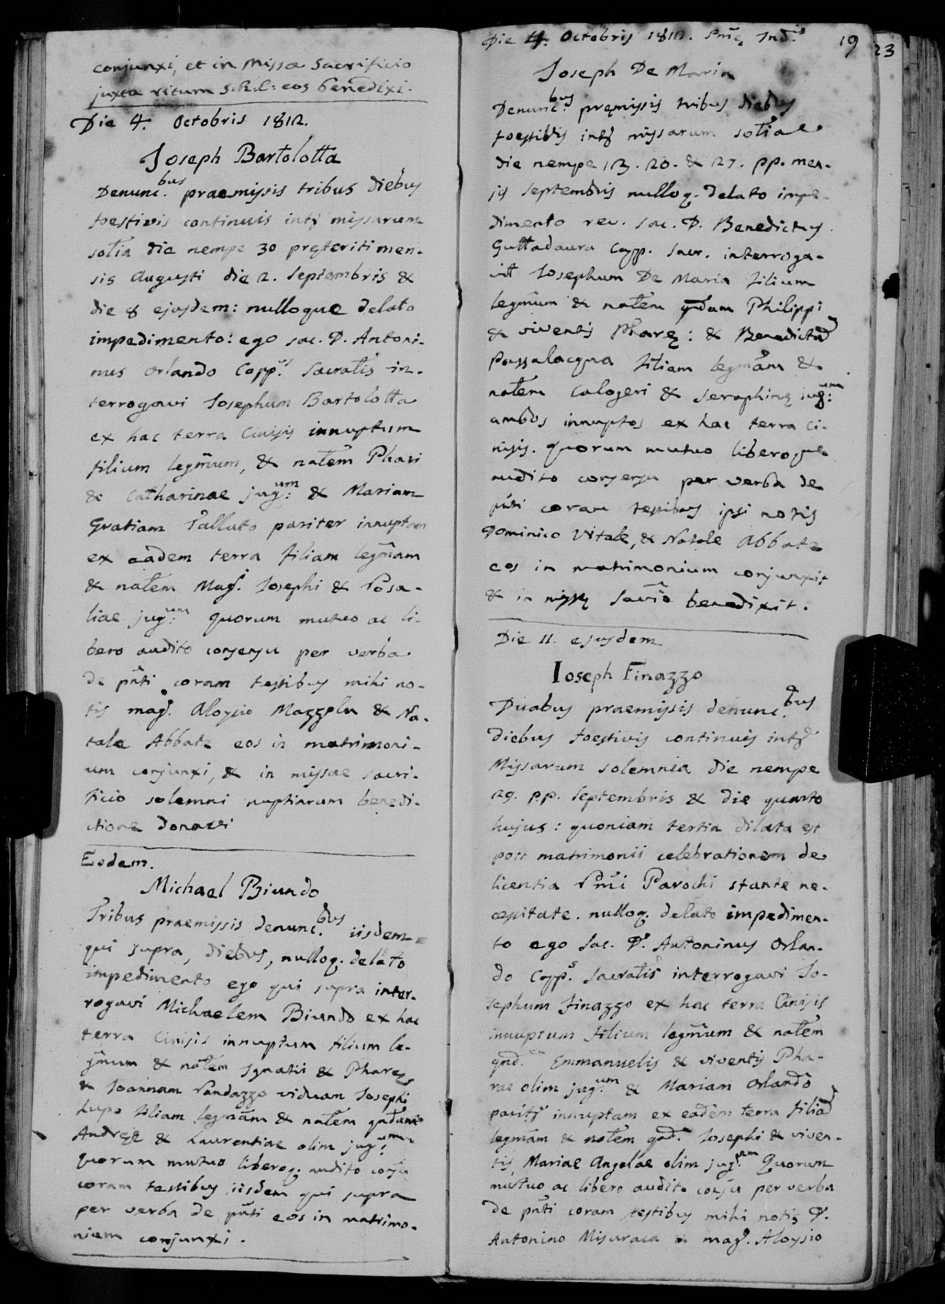 conjunxi, et in Missa Sacrificio
juxta ritum S.R.E: eos benedixi.
Die 4. Octobris 1812.
Joseph Bartolotta
Denunc.bus praemissis tribus diebus
foestivis continuis intr missarum
solia die nempe 30 pręteriti men-
sis Augusti die 2. Septembris &
die 8 ejusdem: nulloque delato
impedimento: ego sac. D. Antoni-
nus Orlando Capp.s Sacralis in-
terrogavi Josephum Bartolotta
ex hac terra Cinisis innuptum
filium legmum, & natem Phari
& Catharinae jug:um & Mariam
Gratiam Pallato pariter innuptam
ex eadem terra filiam legmam
& natem Mag.i Josephi & Rosa-
liae jug:um quorum mutuo ac li-
bero audito consensu per verba
de pnti coram testibus mihi no-
tis mag.o Aloysio Mazzola & Na-
tale Abbate eos in matrimoni-
um conjunxi, & in missae sacri-
ficio solemni nuptiarum benedi-
ctione donavi
Eodem.
Michael Biundo
Tribus praemissis denunc.bus iisdem
qui supra, diebus, nulloq. delato
impedimento ego qui supra inter-
rogavi Michaelem Biundo ex hac
terra Cinisis innuptum filium le-
gmum & natem Ignatii & Pharae
& Joannam Randazzo viduam Josephi
Lupo filiam legmam & natem qndam
Andreę & Laurentiae olim jug:um
quorum mutuo liberoq. audito consu
coram testibus iisdem qui supra
per verba de pnti eos in matrimo-
nium conjunxi.
Die 4. Octobris 1812. Ind.s
19
23
Joseph De Maria
Denunc.bus pręmissis tribus diebus
foestivis intr missarum solia
die nempe 13. 20. & 27. pp. men-
sis Septembris nulloq. delato impe-
dimento rev. sac. D. Benedictus
Guttadaura Capp. Sacr. interroga-
vit Josephum De Maria filium
legmum & natem qndam Philippi
& viventis Pharę: & Benedictam
Passalacqua filiam legmam &
natem Calogeri & Seraphinę jug:um
ambos innuptos ex hac terra Ci-
nisis. Quorum mutuo liberoque
audito consensu per verba de
pnti coram testibus ipsi notis
Dominico Vitale, & Natale Abbate
eos in matrimonium conjunxit
& in missę sacrio benedixit.
Die 11. ejusdem
Joseph Finazzo
Duabus praemissis denunc.bus
diebus foestivis continuis intr
Missarum solemnia die nempe
29. pp. Septembris & die quarto
hujus: quoniam tertia dilata est
post matrimonii celebrationem de
licentia Rmi Parochi stante ne-
cessitate. nulloq. delato impedimen-
to ego Sac. D. Antoninus Orlan-
do Capp.s Sacralis interrogavi Jo-
sephum Finazzo ex hac terra Cinisis
innuptum filium legmum & natem
qnd. Emmanuelis & viventis Pha-
rae olim jug:um & Mariam Orlando
paritr innuptam ex eadem terra filiam
legmam & natem qnd. Josephi & viven-
tis Mariae Angelae olim jug:um Quorum
mutuo ac libero audito consu per verba
de pnti coram testibus mihi notis D.
Antonino Misuraca & mag.o Aloysio